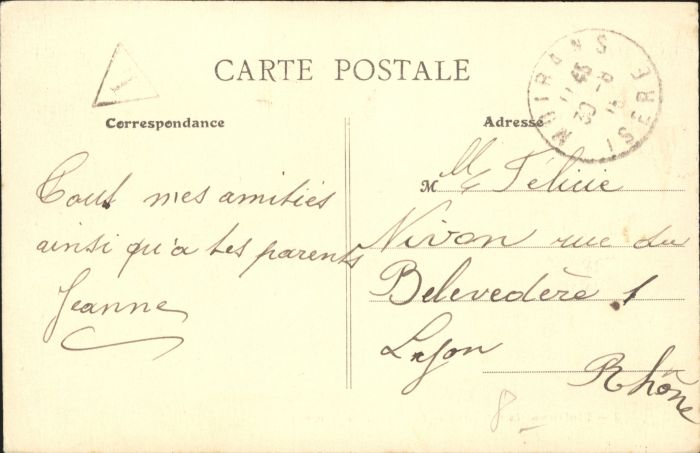 CARTE POSTALE
Correspondance
Tout mes amitiés
ainsi qu'a tes parents
Jeanne
Adresse
M Mlle Félicie
Nivon rue du
Belevedère 1
Lyon
Rhône
8
MOIRANS
ISERE